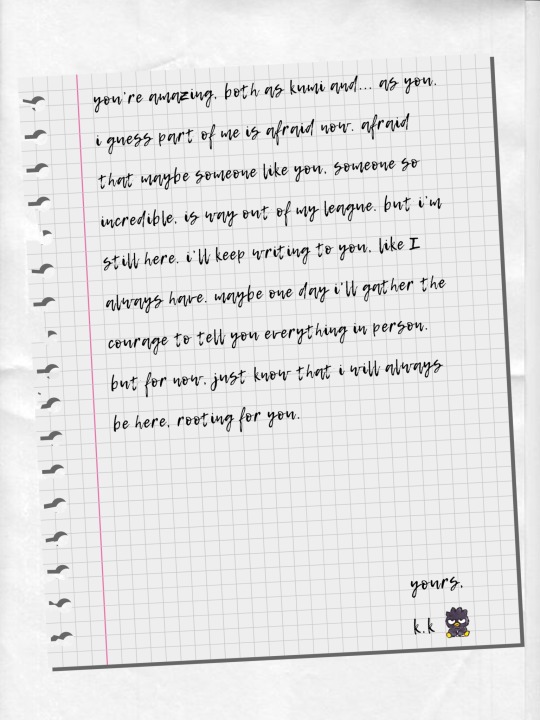 you're amazing. both as kumi and... as you.
i guess part of me is afraid now. afraid
that maybe someone like you. someone so
incredible. is way out of my league. but i'm
still here. i'll keep writing to you. like I
always have. maybe one day i'll gather the
courage to tell you everything in person.
but for now. just know that i will always
be here. rooting for you.
yours.
k.k